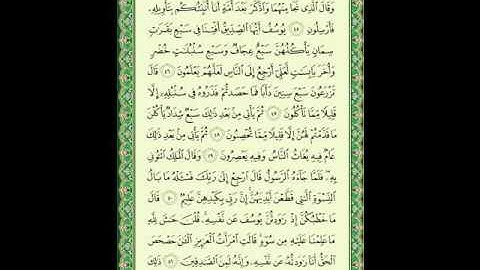 وَقَالَ ٱلَّذِى نَجَا مِنْهُمَا وَٱدَّكَرَ بَعْدَ أُمَّةٍ أَنَا۠ أُنَبِّئُكُم بِتَأْوِيلِهِۦ
فَأَرْسِلُونِ ٤٥ يُوسُفُ أَيُّهَا ٱلصِّدِّيقُ أَفْتِنَا فِى سَبْعِ بَقَرَٰتٍ
سِمَانٍ يَأْكُلُهُنَّ سَبْعٌ عِجَافٌ وَسَبْعِ سُنۢبُلَٰتٍ خُضْرٍ
وَأُخَرَ يَابِسَٰتٍ لَّعَلِّىٓ أَرْجِعُ إِلَى ٱلنَّاسِ لَعَلَّهُمْ يَعْلَمُونَ ٤٦ قَالَ
تَزْرَعُونَ سَبْعَ سِنِينَ دَأَبًا فَمَا حَصَدتُّمْ فَذَرُوهُ فِى سُنۢبُلِهِۦٓ إِلَّا
قَلِيلًا مِّمَّا تَأْكُلُونَ ٤٧ ثُمَّ يَأْتِى مِنۢ بَعْدِ ذَٰلِكَ سَبْعٌ شِدَادٌ يَأْكُلْنَ
مَا قَدَّمْتُمْ لَهُنَّ إِلَّا قَلِيلًا مِّمَّا تُحْصِنُونَ ٤٨ ثُمَّ يَأْتِى مِنۢ بَعْدِ ذَٰلِكَ
عَامٌ فِيهِ يُغَاثُ ٱلنَّاسُ وَفِيهِ يَعْصِرُونَ ٤٩ وَقَالَ ٱلْمَلِكُ ٱئْتُونِى
بِهِۦ فَلَمَّا جَآءَهُ ٱلرَّسُولُ قَالَ ٱرْجِعْ إِلَىٰ رَبِّكَ فَسْـَٔلْهُ مَا بَالُ
ٱلنِّسْوَةِ ٱلَّٰتِى قَطَّعْنَ أَيْدِيَهُنَّ إِنَّ رَبِّى بِكَيْدِهِنَّ عَلِيمٌ ٥٠ قَالَ
مَا خَطْبُكُنَّ إِذْ رَٰوَدتُّنَّ يُوسُفَ عَن نَّفْسِهِۦ قُلْنَ حَٰشَ لِلَّهِ
مَا عَلِمْنَا عَلَيْهِ مِن سُوٓءٍ قَالَتِ ٱمْرَأَتُ ٱلْعَزِيزِ ٱلْـَٰٔنَ حَصْحَصَ
ٱلْحَقُّ أَنَا۠ رَٰوَدتُّهُۥ عَن نَّفْسِهِۦ وَإِنَّهُۥ لَمِنَ ٱلصَّٰدِقِينَ ٥١